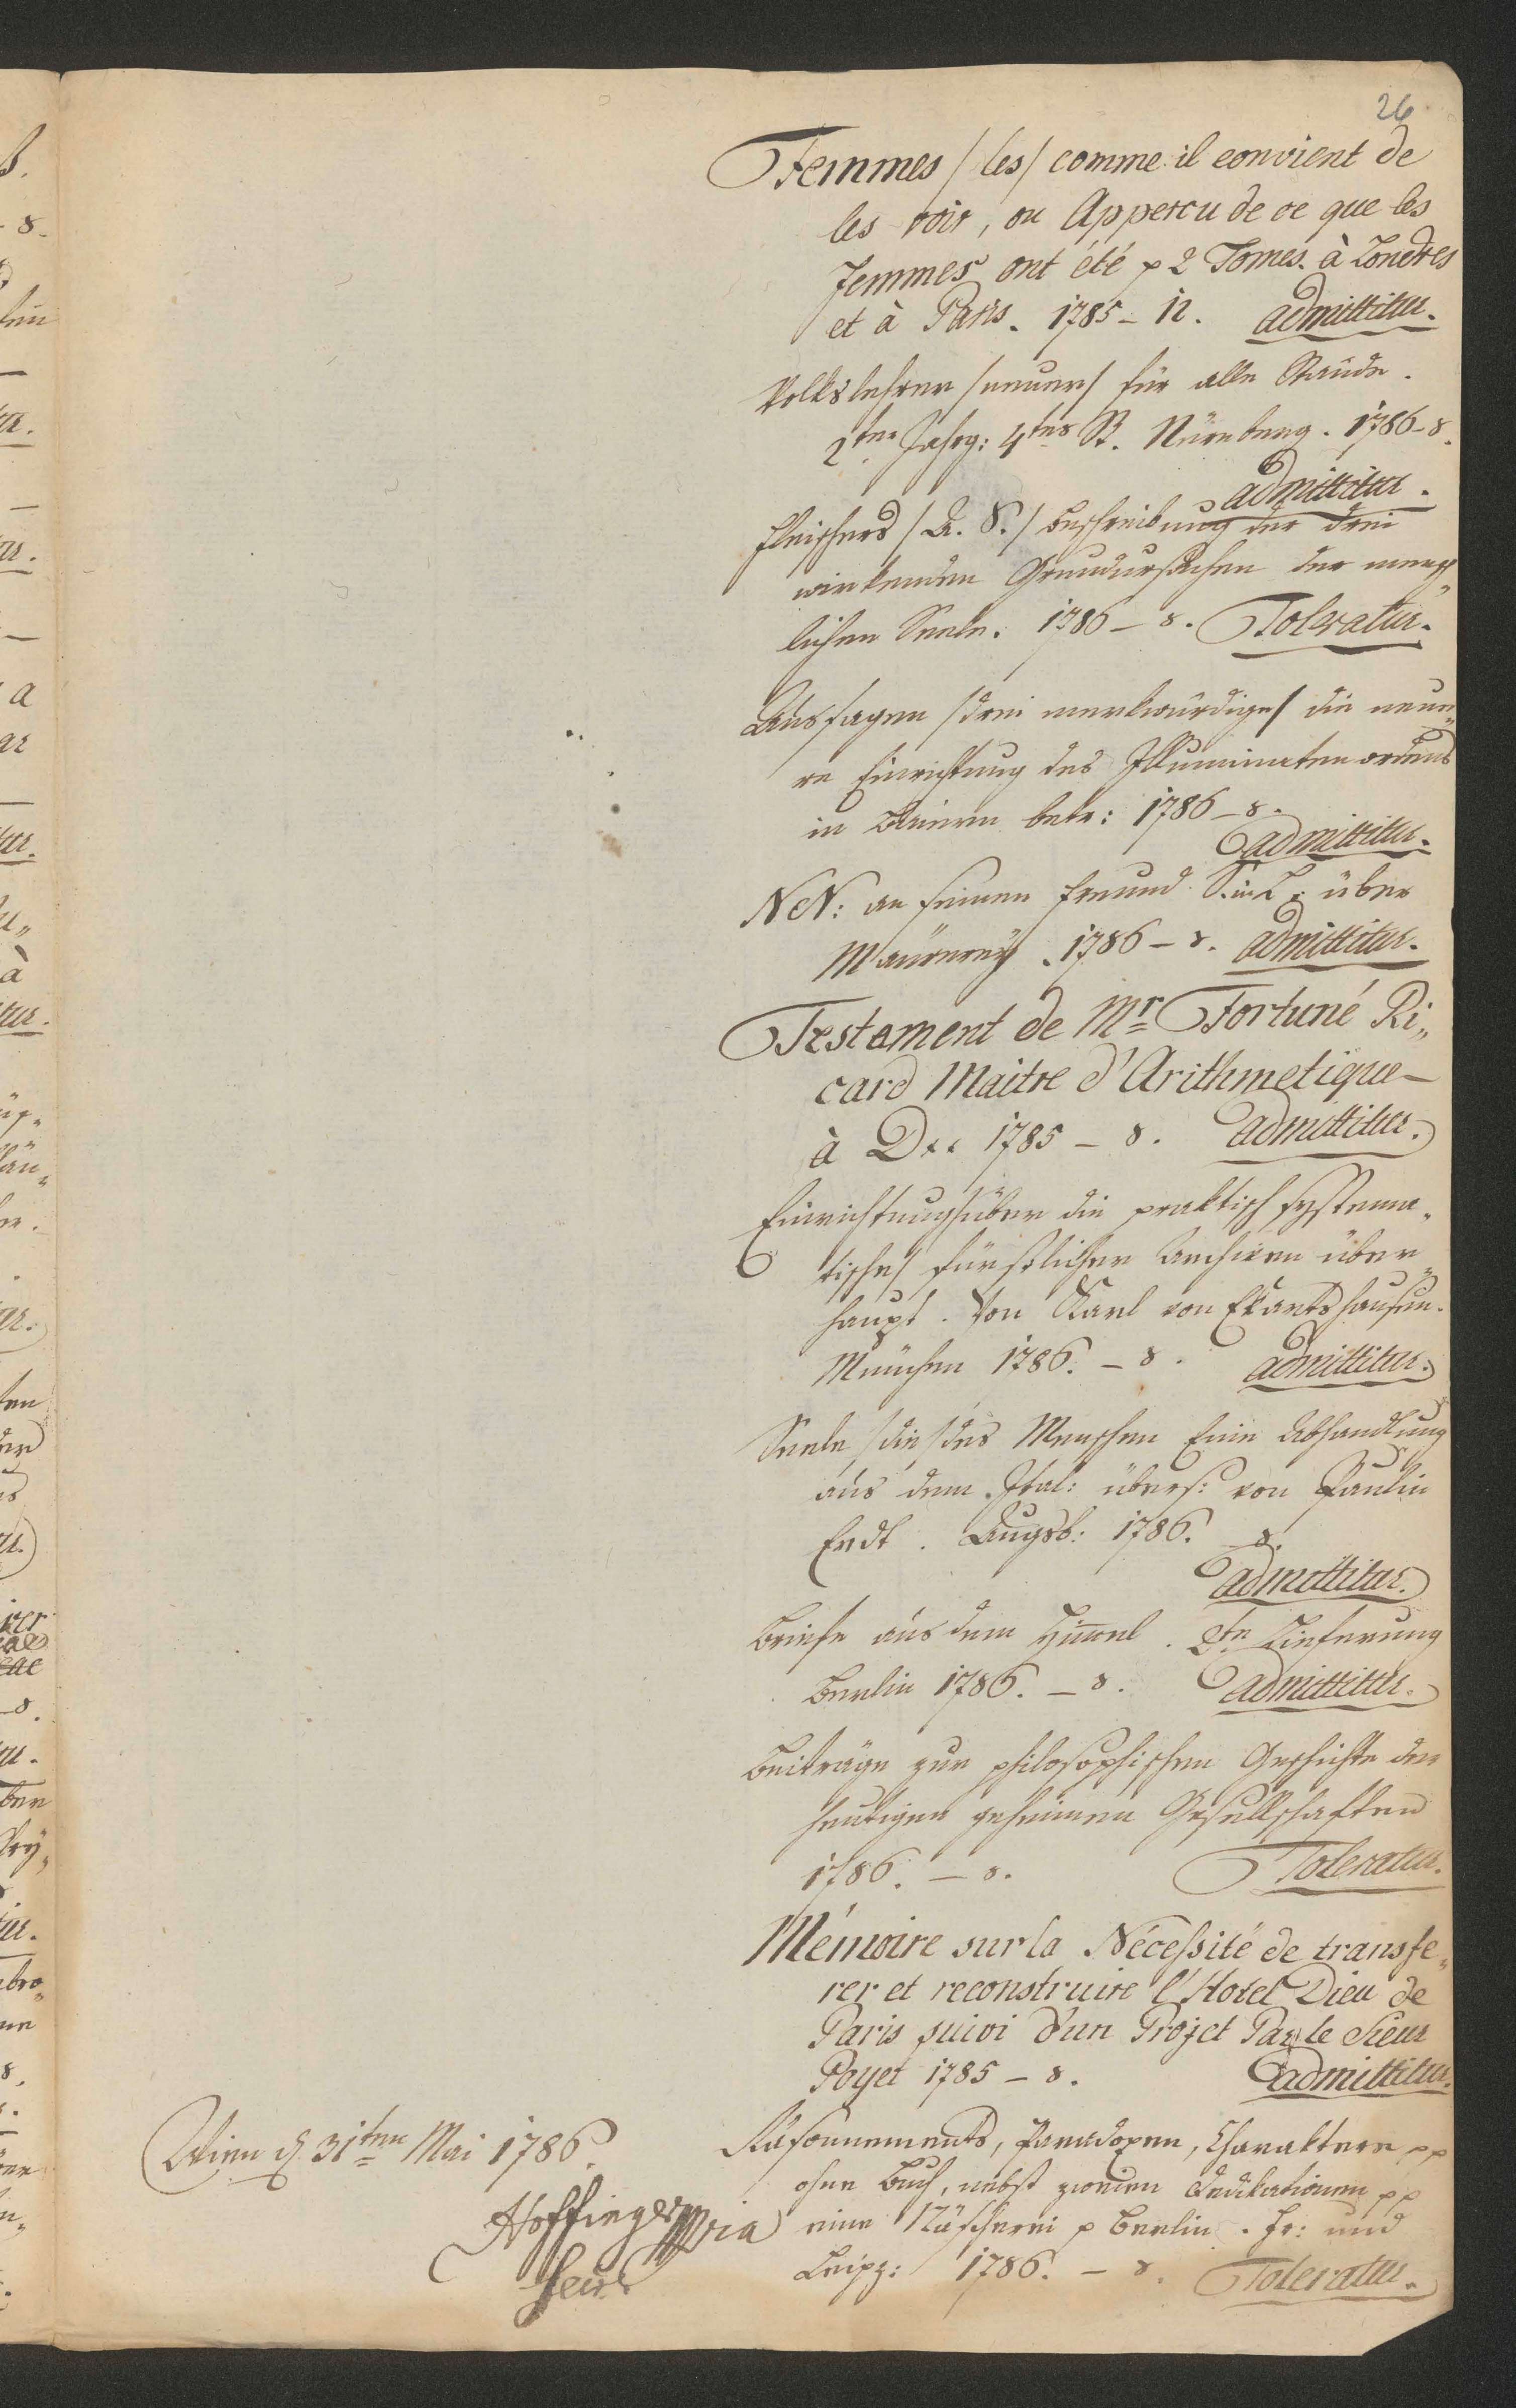 26
Femmes /les/ comme il convient de
les voir, ou Appercu de ce que les
femmes ont été p 2 Tomes. à Londres
et à Paris. 1785 – 12. admittitur.
Volkslehrer /neuer/ für alle Stände.
2ter Jahrg: 4tes St. Nürnberg. 1786 – 8.
admittitur.
Fleischers /A. S./ Beschreibung der drei
wirkenden Grundursachen der mensch„
lichen Seele. 1786 – 8. Toleratur.
Aussagen /drei merkwürdige/ die neue„
re Einrichtung des Illuminatenordens
in Baiern betr: 1786 – 8.
admittitur.
NN: an seinen Freund S. in L: über
Maurerey. 1786 – 8. admittitur.
Testament de Mr. Fortuné Ri„
card Maitre d'Arithmetique –
à D... 1785 – 8. admittitur.
Einrichtung /über die praktisch systema„
tische/ fürstlicher Archiven über„
haupt. Von Karl von Ekartshausen.
München 1786. – 8. admittitur.
Seele /die/ des Menschen Eine Abhandlung
aus dem Ital: übers: von Paulin
Erdt. Augsb: 1786. – 8.
admittitur.
Briefe aus dem Himmel. 2te Lieferung
Berlin 1786. – 8. admittitur.
Beiträge zur philosophischen Geschichte der
heutigen geheimen Gesellschaften
1786. – 8. Toleratur.
Mémoire sur la Nécessité de transfe„
rer et reconstruire l'Hotel Dieu de
Paris suivi d'un Projet Par le Sieur
Poyet 1785 – 8. admittitur.
Räsonnements, Paradoxen, Charaktere pp
ohne Buch, nebst zweien Dedikationen pp
eine Näscherei p Berlin. Fr: und
Leipz: 1786. – 8. Toleratur.
Wien d. 31ten Mai 1786.
Hoffinger mpria